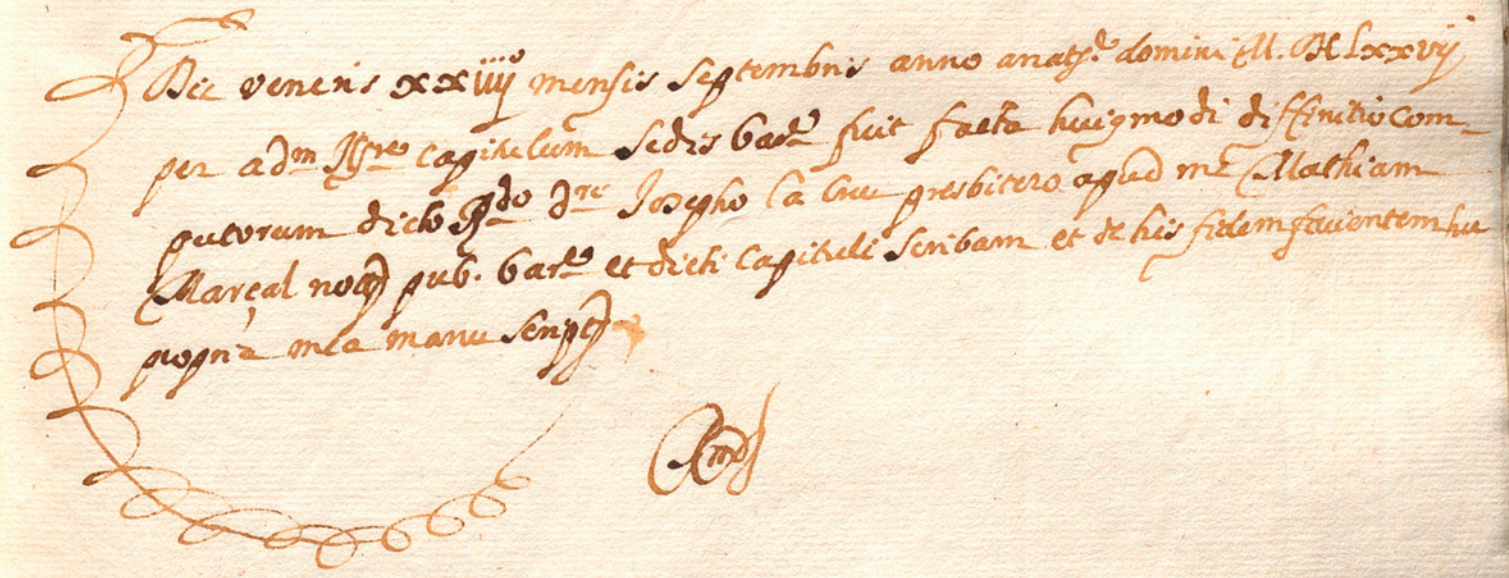 Die veneris xxiiij mensis septembris anno a natte. domini M. DC Lxxvij
per adm Illre capitulum sedis barne. fuit facta huiqmodi diffinitio com-
putorum dicto Rdo. Dre Josepho la creu presbitero apud me Mathiam
Marçal nom pub. barne. et dicti capituli scribam et de his fidem facientem hic
propria mea manu script